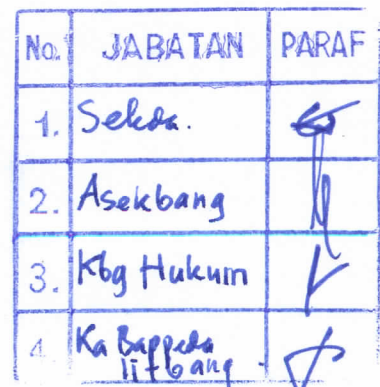 No. JABATAN PARAF
1. Sekda.
2. Asekbang
3. Kbg Hukum
4. Ka Bappeda
litbang